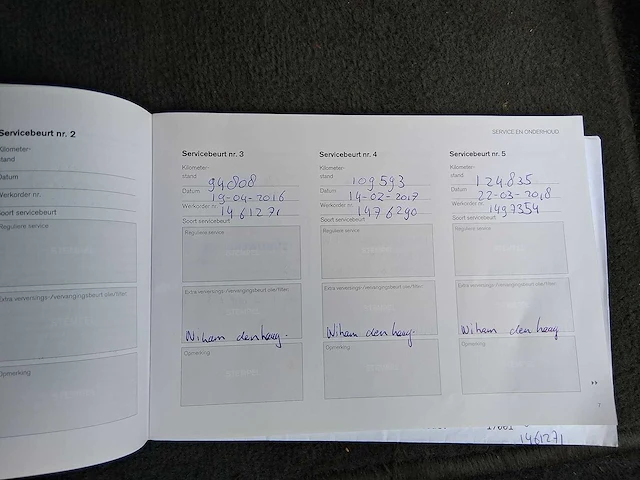 SERVICE EN ONDERHOUD
Servicebeurt nr. 2
Kilometer-
stand
Datum
Werkorder nr.
Soort servicebeurt
Reguliere service
Extra verversings-/vervangingsbeurt olie/filter
Opmerking
Servicebeurt nr. 3
Kilometer-
stand 94808
Datum 19-04-2016
Werkorder nr. 1461271
Soort servicebeurt
Reguliere service
Extra verversings-/vervangingsbeurt olie/filter:
Wiham den haag.
Opmerking
Servicebeurt nr. 4
Kilometer-
stand 109593
Datum 14-02-2017
Werkorder nr. 1476290
Soort servicebeurt
Reguliere service
Extra verversings-/vervangingsbeurt olie/filter:
Wiham den haag.
Opmerking
Servicebeurt nr. 5
Kilometer-
stand 124835
Datum 22-03-2018
Werkorder nr. 1497354
Soort servicebeurt
Reguliere service
Extra verversings-/vervangingsbeurt olie/filter:
Wiham den haag
Opmerking
7
1461271